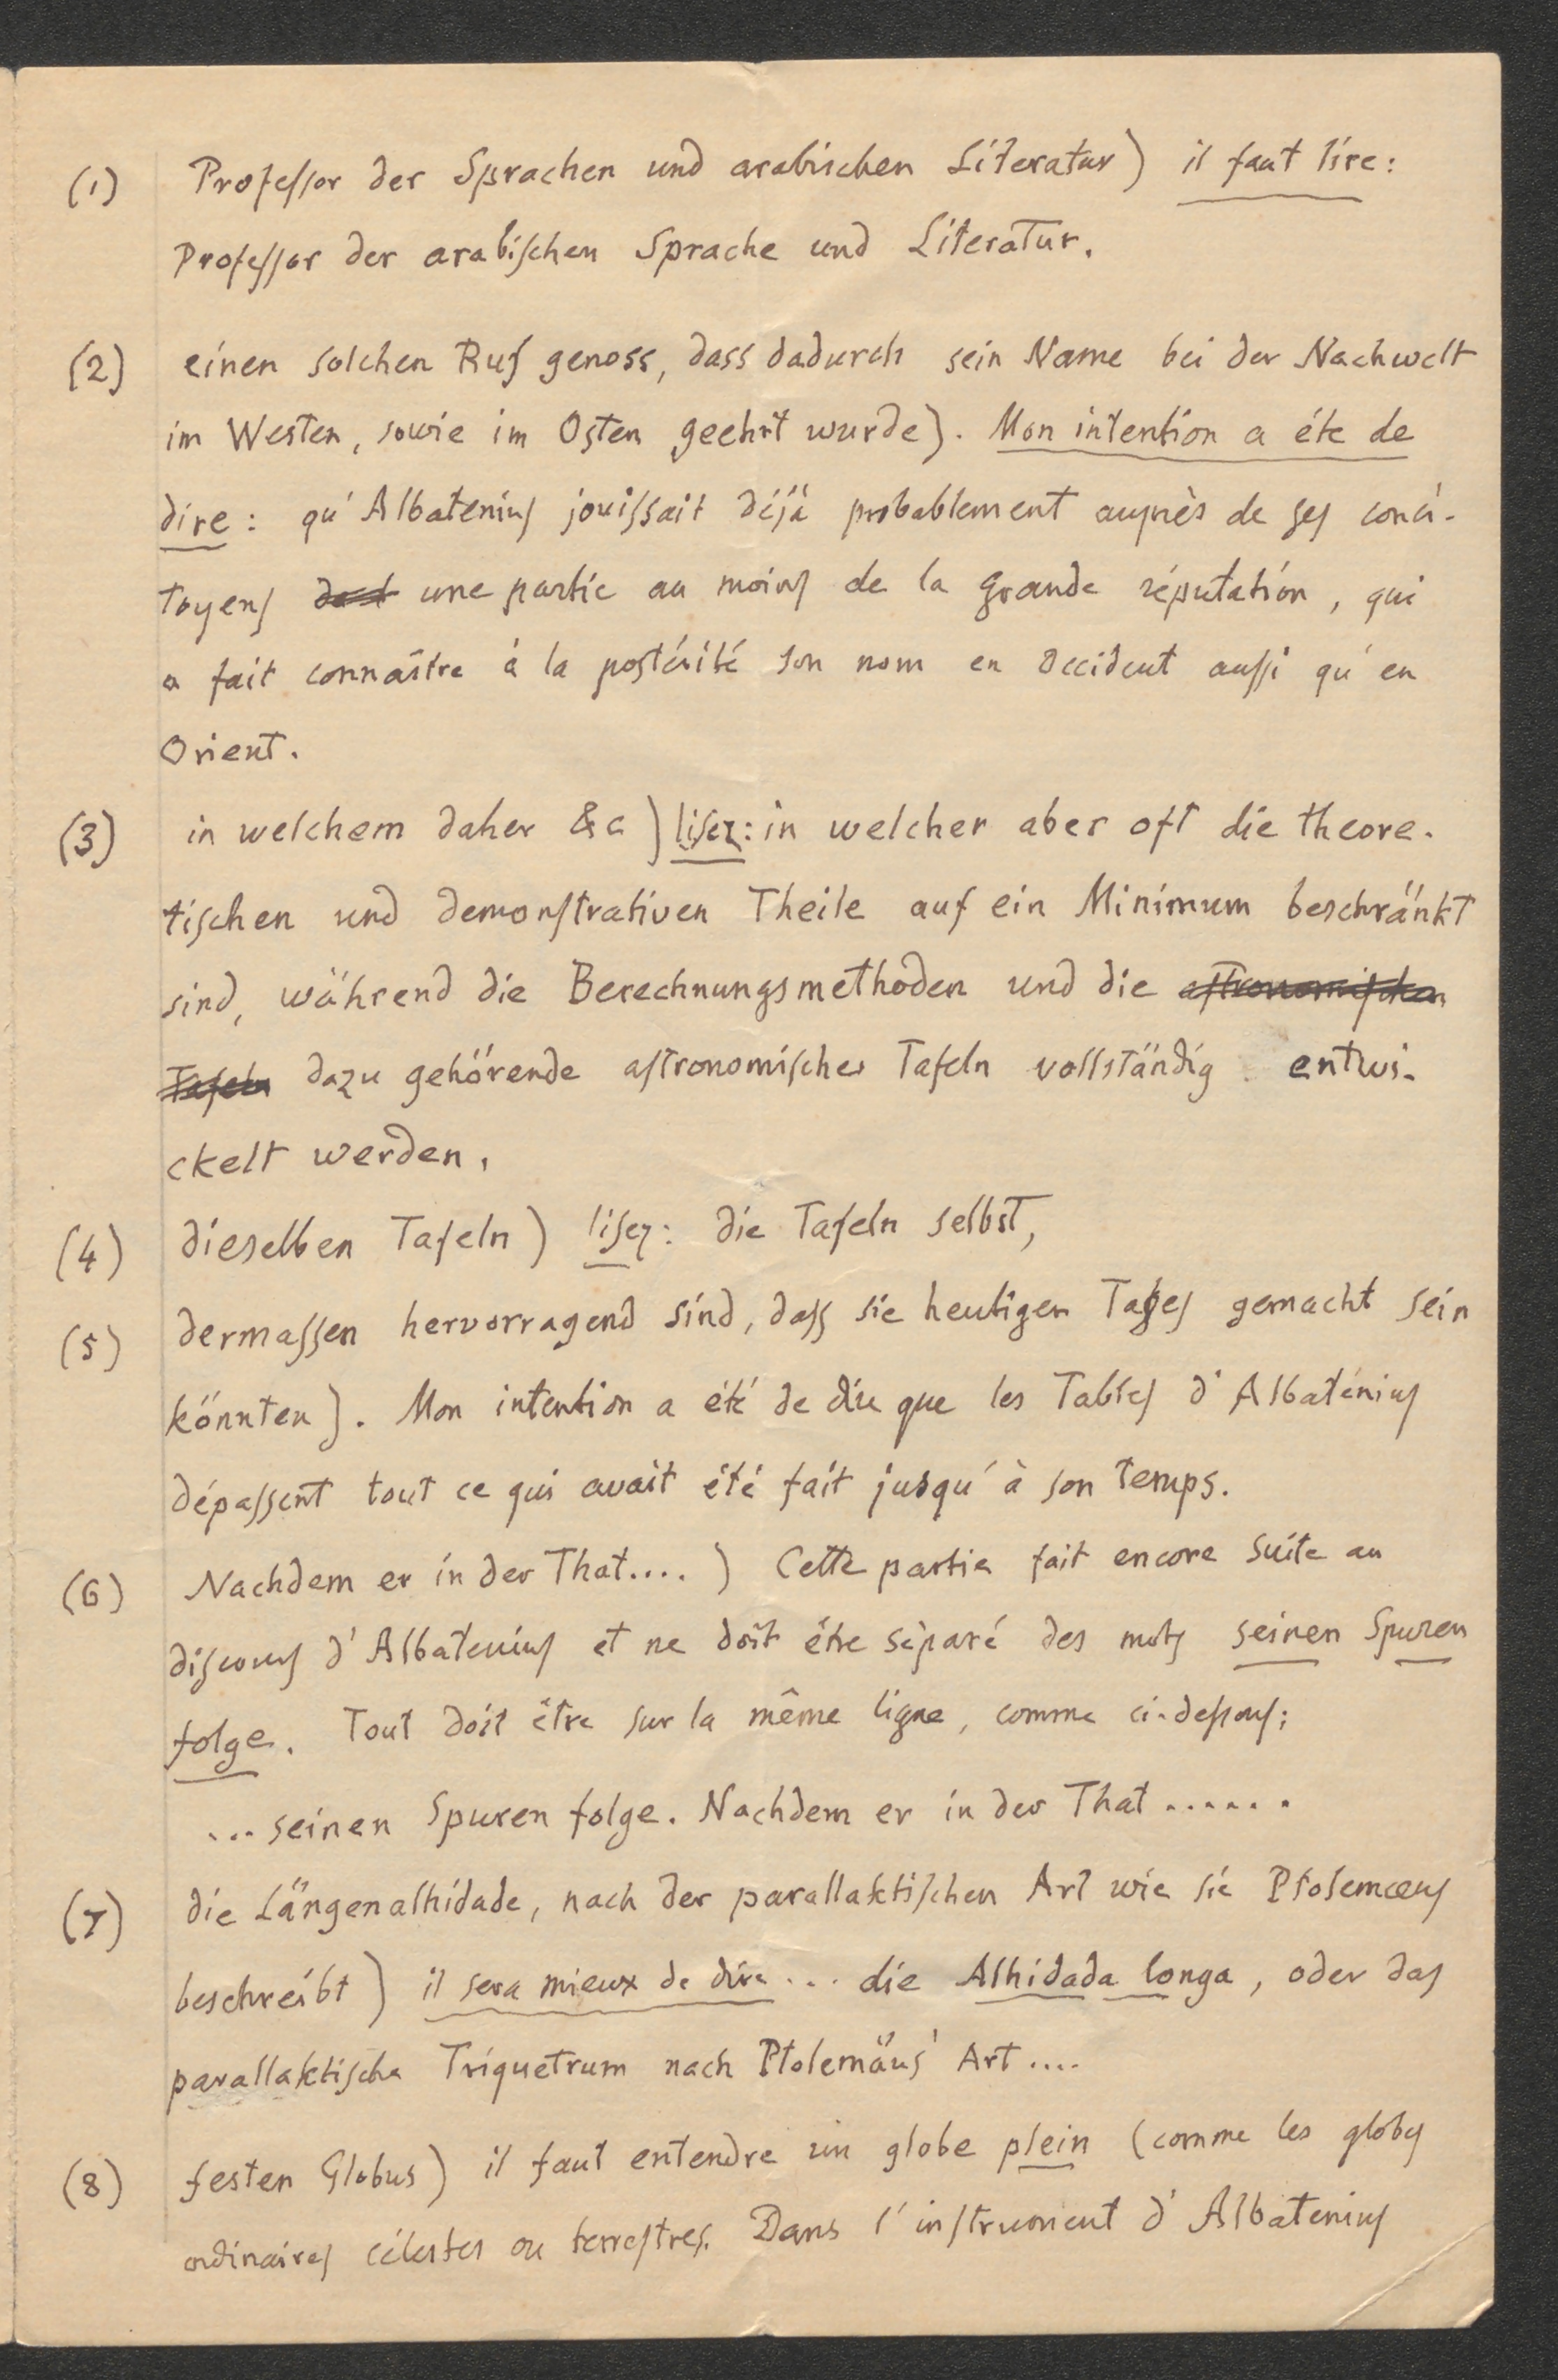 (1) Professor der Sprachen und arabischen Literatur) il faut lire:
Professor der arabischen Sprache und Literatur.
(2) einen solchen Ruf genoss, dass dadurch sein Name bei der Nachwelt
im Westen, sowie im Osten geehrt wurde). Mon intention a éte de
dire: qu'Albatenius jouissait déjà probablement auprès de ses conci-
toyens une partie au moins de la grande réputation, qui
a fait connaître à la postérité son nom en Occident aussi qu'en
Orient.
(3) in welchem daher &c) lisez: in welcher aber oft die theore-
tischen und demonstrativen Theile auf ein Minimum beschränkt
sind, während die Berechnungsmethoden und die astronomischen
Tafeln dazu gehörende astronomisches Tafeln vollständig entwi-
ckelt werden.
(4) dieselben Tafeln) lisez: die Tafeln selbst,
(5) dermassen hervorragend sind, dass sie heutigen Tages gemacht sein
könnten). Mon intention a été de dire que les Tables d'Albaténius
dépassent tout ce qui avait été fait jusqu'à son temps.
(6) Nachdem er in der That....) Cette partie fait encore suite au
discours d'Albatenius et ne doit être séparé des mots seinen Spuren
folge. Tout doit être sur la même ligne, comme ci-dessous:
... seinen Spuren folge. Nachdem er in der That ......
(7) die Längenalhidade, nach der parallaktischen Art wie sie Ptolemæus
beschreibt) il sera mieux de dire ... die Alhidada longa, oder das
parallaktische Triquetrum nach Ptolemäus' Art ....
(8) festen Globus) il faut entendre un globe plein (comme les globes
ordinaires célestes ou terrestres. Dans l'instrument d'Albatenius